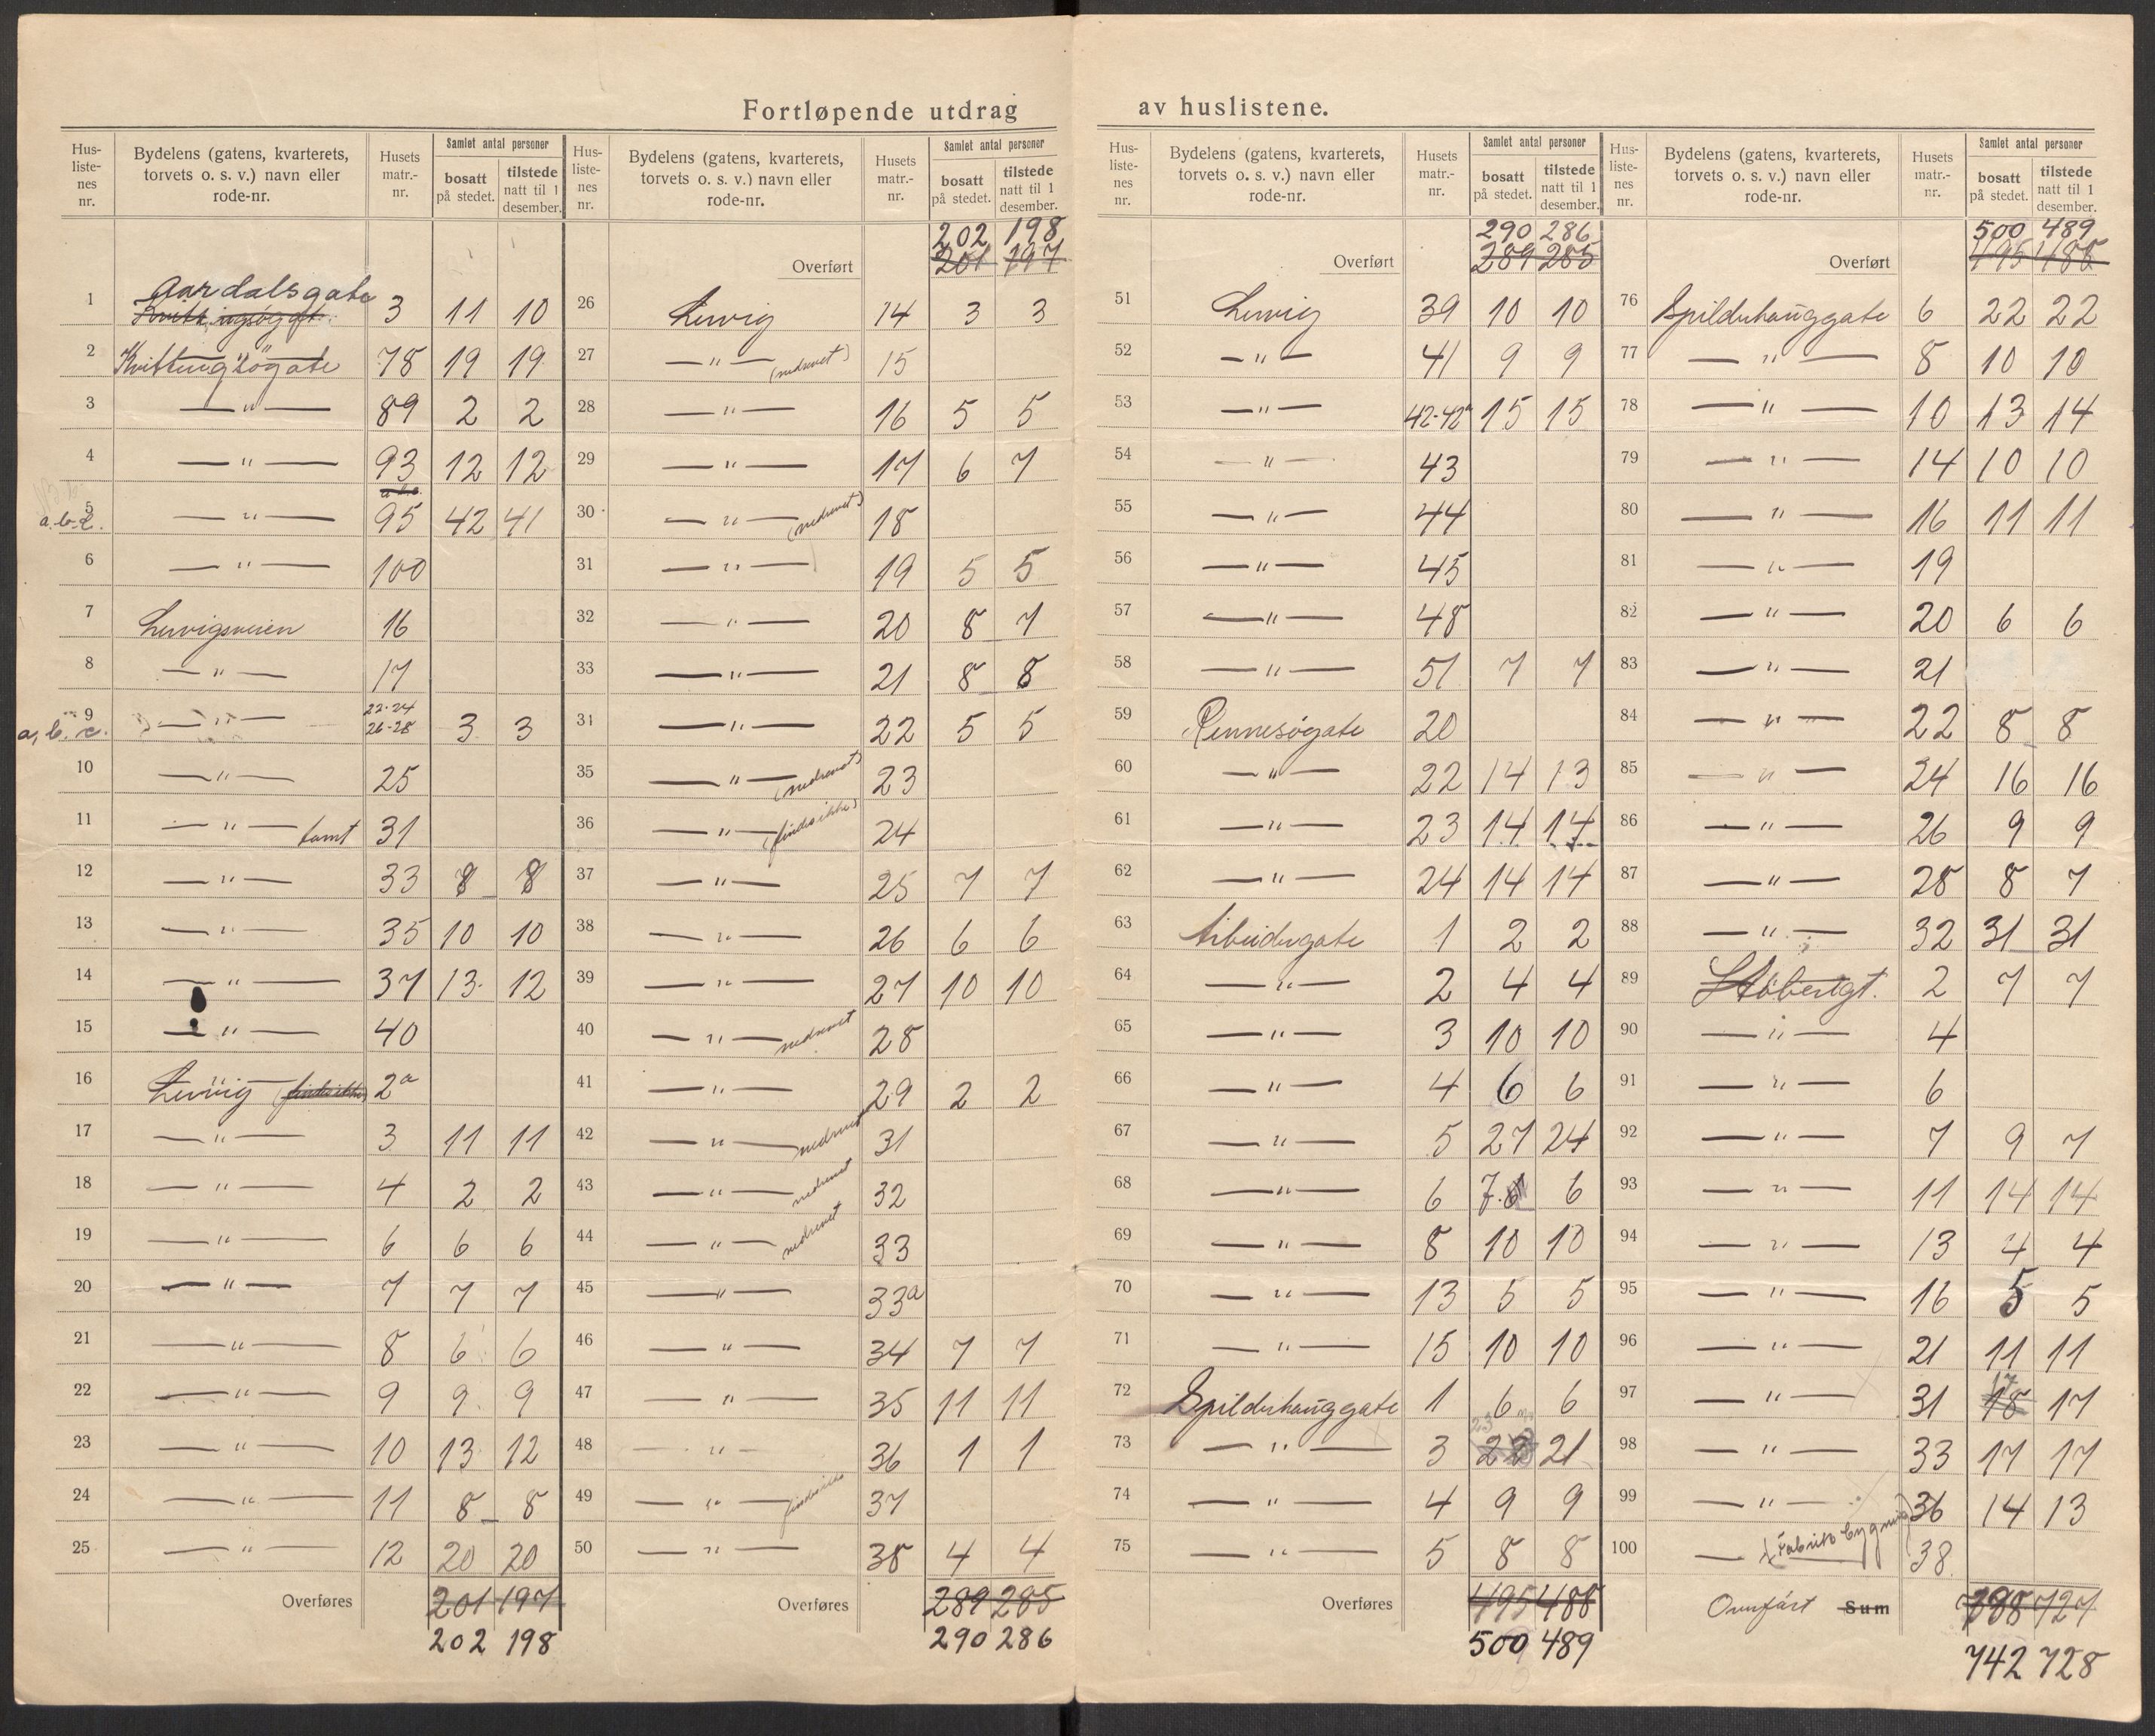 Fortløpende utdrag av huslistene.
Hus-liste-nes nr. | Bydelens (gatens, kvarterets, torvets o. s. v.) navn eller rode-nr. | Husets matr.-nr. | Samlet antal personer bosatt på stedet. | tilstede natt til 1 desember.
1 Aardalsgate 3 11 10
2 Kvitsingsøgate 78 19 19
3 —"— 89 2 2
4 —"— 93 12 12
5 a.b.c. —"— 95 42 41
6 —"— 100
7 Lervigsveien 16
8 —"— 17
9 a, b. c. —"— 22-24 26-28 3 3
10 —"— 25
11 —"— tomt 31
12 —"— 33 8 8
13 —"— 35 10 10
14 —"— 37 13 12
15 —"— 40
16 Lervig (findes ikke) 2a
17 —"— 3 11 11
18 —"— 4 2 2
19 —"— 6 6 6
20 —"— 7 7 7
21 —"— 8 6 6
22 —"— 9 9 9
23 —"— 10 13 12
24 —"— 11 8 8
25 —"— 12 20 20
Overføres 201 197
202 198
Hus-liste-nes nr. | Bydelens (gatens, kvarterets, torvets o. s. v.) navn eller rode-nr. | Husets matr.-nr. | Samlet antal personer bosatt på stedet. | tilstede natt til 1 desember.
202 198
Overført 201 197
26 Lervig 14 3 3
27 —"— (nedrevet) 15
28 —"— 16 5 5
29 —"— 17 6 7
30 —"— (nedrevet) 18
31 —"— 19 5 5
32 —"— 20 8 7
33 —"— 21 8 8
31 —"— 22 5 5
35 —"— (nedrevet) 23
36 —"— (findes ikke) 24
37 —"— 25 7 7
38 —"— 26 6 6
39 —"— 27 10 10
40 —"— nedrevet 28
41 —"— 29 2 2
42 —"— nedrevet 31
43 —"— nedrevet 32
44 —"— nedrevet 33
45 —"— 33a
46 —"— 34 7 7
47 —"— 35 11 11
48 —"— 36 1 1
49 —"— findes ikke 37
50 —"— 38 4 4
Overføres 289 285
290 286
Hus-liste-nes nr. | Bydelens (gatens, kvarterets, torvets o. s. v.) navn eller rode-nr. | Husets matr.-nr. | Samlet antal personer bosatt på stedet. | tilstede natt til 1 desember.
290 286
Overført 289 285
51 Lervig 39 10 10
52 —"— 41 9 9
53 —"— 42-42a 15 15
54 —"— 43
55 —"— 44
56 —"— 45
57 —"— 48
58 —"— 51 7 7
59 Rennesøgate 20
60 —"— 22 14 13
61 —"— 23 14 14
62 —"— 24 14 14
63 Arbeidergate 1 2 2
64 —"— 2 4 4
65 —"— 3 10 10
66 —"— 4 6 6
67 —"— 5 27 24
68 —"— 6 7 6
69 —"— 8 10 10
70 —"— 13 5 5
71 —"— 15 10 10
72 Spilderhauggate 1 6 6
73 —"— 3 23 21
74 —"— 4 9 9
75 —"— 5 8 8
Overføres 495 488
500 489
Hus-liste-nes nr. | Bydelens (gatens, kvarterets, torvets o. s. v.) navn eller rode-nr. | Husets matr.-nr. | Samlet antal personer bosatt på stedet. | tilstede natt til 1 desember.
500 489
Overført 495 488
76 Spilderhauggate 6 22 22
77 —"— 8 10 10
78 —"— 10 13 14
79 —"— 14 10 10
80 —"— 16 11 11
81 —"— 19
82 —"— 20 6 6
83 —"— 21
84 —"— 22 8 8
85 —"— 24 16 16
86 —"— 26 9 9
87 —"— 28 8 7
88 —"— 32 31 31
89 Støberigt. 2 7 7
90 —"— 4
91 —"— 6
92 —"— 7 9 7
93 —"— 11 14 14
94 —"— 13 4 4
95 —"— 16 5 5
96 —"— 21 11 11
97 —"— 31 17 18 17
98 —"— 33 17 17
99 —"— 36 14 13
100 — (Fabrikkbygning) 38
Overført Sum 727
742 728